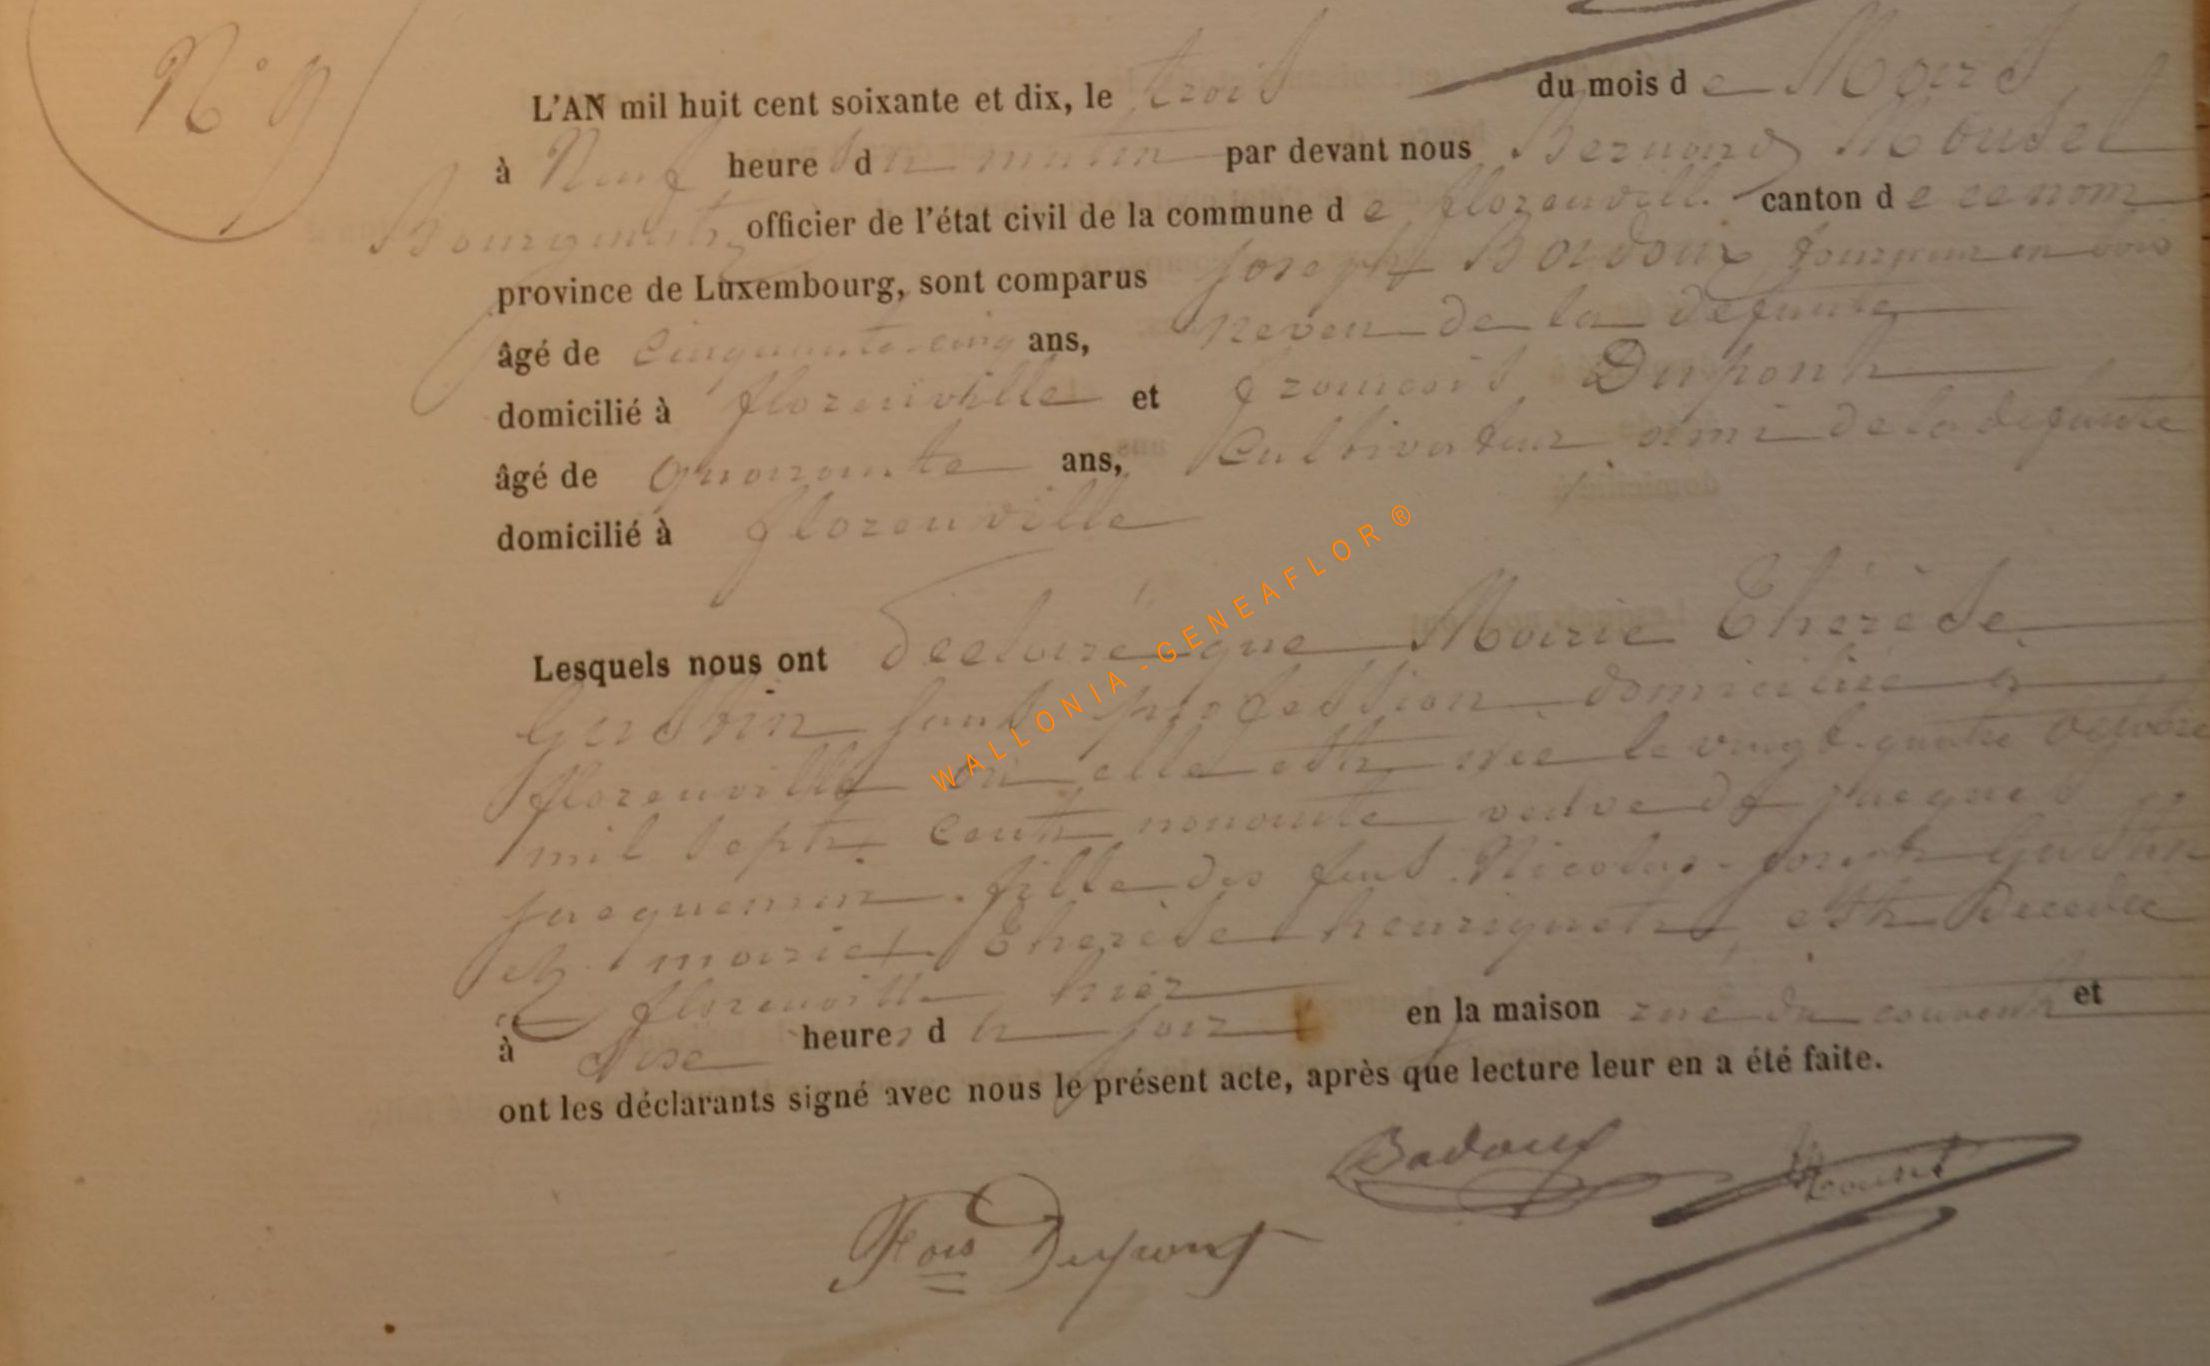 N° 9
L'AN mil huit cent soixante et dix, le trois du mois de Mars
à Neuf heure du matin par devant nous Bernard Mousel
Bourgmestre officier de l'état civil de la commune de florenville canton de ce nom
province de Luxembourg, sont comparus Joseph Badoux fourneur en bois
âgé de cinquante-cinq ans, neveu de la défunte
domicilié à florenville et françois Dupont
âgé de quarante ans, Cultivateur ami de la défunte
domicilié à florenville
Lesquels nous ont déclaré que Marie Thérèse
Gustin sans profession domiciliée à
florenville où elle est née le vingt-quatre octobre
mil sept cent nonante veuve de jacques
jacquemin fille des feus Nicolas joseph Gustin
et marie Thérèse henriquet, est décédée
à florenville hier
à heures du soir en la maison rue du couvent et
ont les déclarants signé avec nous le présent acte, après que lecture leur en a été faite.
Badoux
Fois Dupont
WALLONIA-GENEAFLOR ®